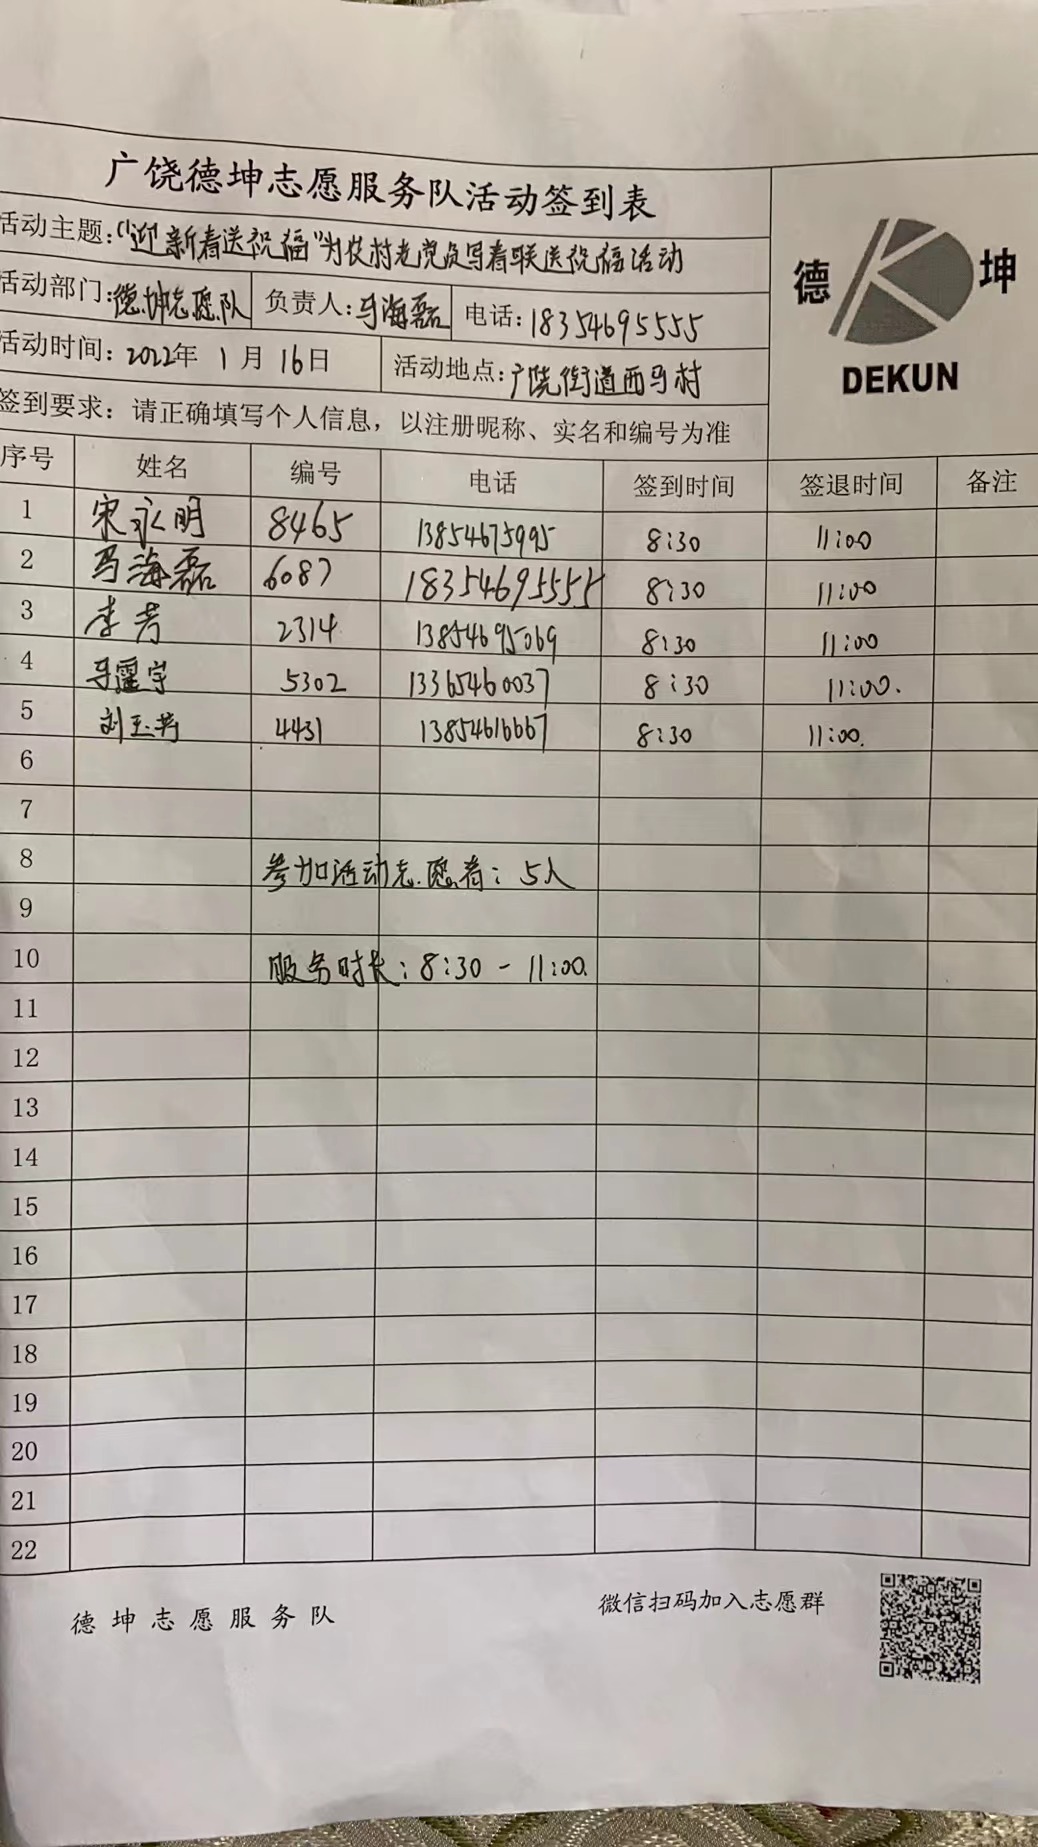 广饶德坤志愿服务队活动签到表
活动主题:“迎新春送祝福”为农村老党员写春联送祝福活动
德 坤
DEKUN
活动部门:德坤志愿队 负责人:马海磊 电话:18354695555
活动时间:2022年 1月16日 活动地点:广饶街道西马村
签到要求:请正确填写个人信息,以注册昵称、实名和编号为准
序号 姓名 编号 电话 签到时间 签退时间 备注
1 宋永明 8465 13854675995 8:30 11:00
2 马海磊 6087 18354695555 8:30 11:00
3 李芳 2314 13854695069 8:30 11:00
4 马霆宇 5302 13365460037 8:30 11:00.
5 刘玉芳 4431 13854616667 8:30 11:00.
6
7
8 参加活动志愿者:5人
9
10 服务时长:8:30-11:00.
11
12
13
14
15
16
17
18
19
20
21
22
德坤志愿服务队 微信扫码加入志愿群